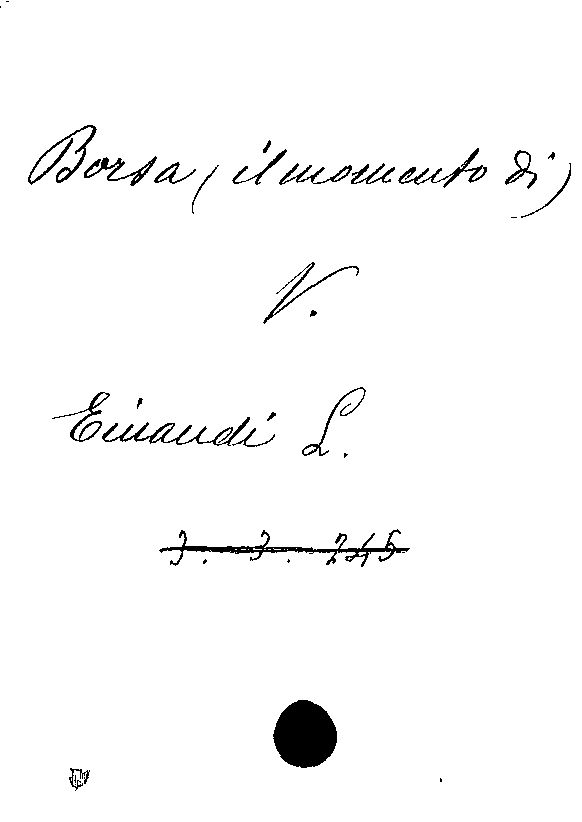 Borsa (il momento di)
V.
Einaudi L.
3. 3. 245